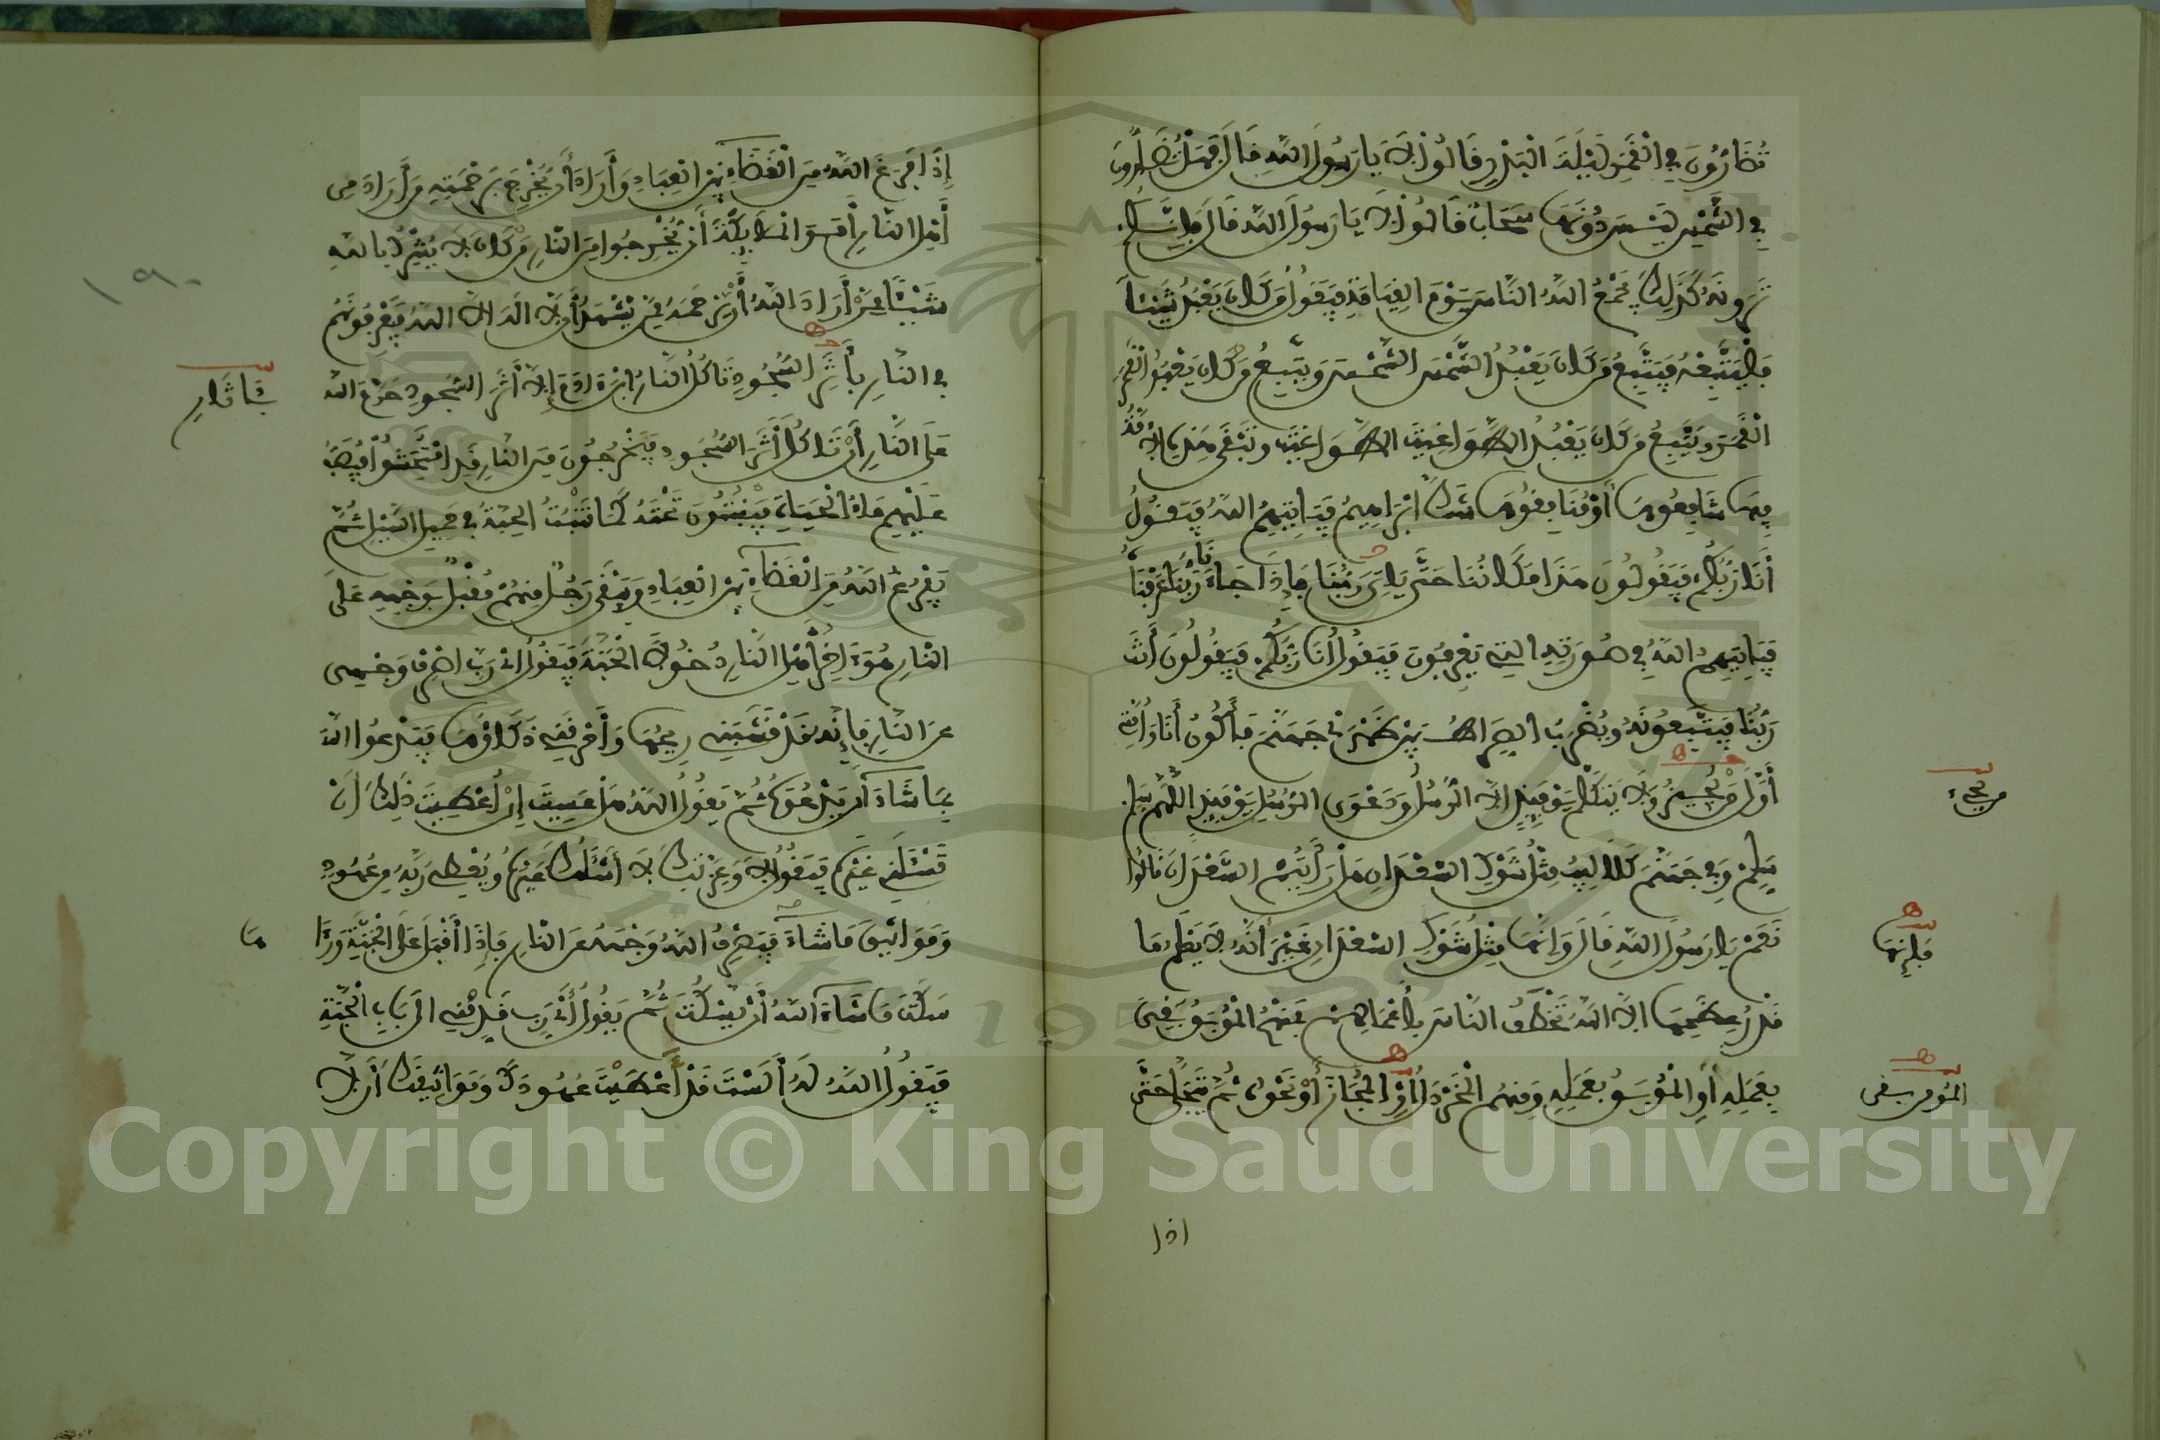 تُضَارُّونَ فِي الْقَمَرِ لَيْلَةَ الْبَدْرِ قَالُوا لَا يَا رَسُولَ اللهِ قَالَ فَهَلْ تُضَارُّونَ
فِي الشَّمْسِ لَيْسَ دُونَهَا سَحَابٌ قَالُوا لَا يَا رَسُولَ اللهِ قَالَ فَإِنَّكُمْ
تَرَوْنَهُ كَذَلِكَ يَجْمَعُ اللهُ النَّاسَ يَوْمَ الْقِيَامَةِ فَيَقُولُ مَنْ كَانَ يَعْبُدُ شَيْئًا
فَلْيَتَّبِعْهُ فَيَتَّبِعُ مَنْ كَانَ يَعْبُدُ الشَّمْسَ الشَّمْسَ وَيَتَّبِعُ مَنْ كَانَ يَعْبُدُ الْقَمَرَ
الْقَمَرَ وَيَتَّبِعُ مَنْ كَانَ يَعْبُدُ الطَّوَاغِيتَ الطَّوَاغِيتَ وَتَبْقَى هَذِهِ الْأُمَّةُ
فِيهَا شَافِعُوهَا أَوْ مُنَافِقُوهَا شَكَّ إِبْرَاهِيمُ فَيَأْتِيهِمُ اللهُ فَيَقُولُ
أَنَا رَبُّكُمْ فَيَقُولُونَ هَذَا مَكَانُنَا حَتَّى يَأْتِيَ رَبُّنَا فَإِذَا جَاءَنَا رَبُّنَا عَرَفْنَاهُ
فَيَأْتِيهِمُ اللهُ فِي صُورَتِهِ الَّتِي يَعْرِفُونَ فَيَقُولُ أَنَا رَبُّكُمْ فَيَقُولُونَ أَنْتَ
رَبُّنَا فَيَتَّبِعُونَهُ وَيُضْرَبُ الصِّرَاطُ بَيْنَ ظَهْرَيْ جَهَنَّمَ فَأَكُونُ أَنَا وَأُمَّتِي
أَوَّلَ مَنْ يُجِيزُ وَلَا يَتَكَلَّمُ يَوْمَئِذٍ إِلَّا الرُّسُلُ وَدَعْوَى الرُّسُلِ يَوْمَئِذٍ اللَّهُمَّ سَلِّمْ
سَلِّمْ وَفِي جَهَنَّمَ كَلَالِيبُ مِثْلُ شَوْكِ السَّعْدَانِ هَلْ رَأَيْتُمُ السَّعْدَانَ قَالُوا
نَعَمْ يَا رَسُولَ اللهِ قَالَ وَإِنَّهَا مِثْلُ شَوْكِ السَّعْدَانِ غَيْرَ أَنَّهُ لَا يَعْلَمُ مَا
قَدْرُ عِظَمِهَا إِلَّا اللهُ تَخْطَفُ النَّاسَ بِأَعْمَالِهِمْ فَمِنْهُمُ الْمُوبَقُ بَقِيَ
بِعَمَلِهِ أَوِ الْمُوبَقُ بِعَمَلِهِ وَمِنْهُمُ الْمُخَرْدَلُ أَوِ الْمُجَازَى أَوْ نَحْوُهُ ثُمَّ يَتَجَلَّى حَتَّى
فإنها
المؤمن بقي
اذا
إِذَا فَرَغَ اللهُ مِنَ الْقَضَاءِ بَيْنَ الْعِبَادِ وَأَرَادَ أَنْ يُخْرِجَ بِرَحْمَتِهِ مَنْ أَرَادَ مِنْ
أَهْلِ النَّارِ أَمَرَ الْمَلَائِكَةَ أَنْ يُخْرِجُوا مِنَ النَّارِ مَنْ كَانَ لَا يُشْرِكُ بِاللهِ
شَيْئًا مِمَّنْ أَرَادَ اللهُ أَنْ يَرْحَمَهُ مِمَّنْ يَشْهَدُ أَنْ لَا إِلَهَ إِلَّا اللهُ فَيَعْرِفُونَهُمْ
فِي النَّارِ بِأَثَرِ السُّجُودِ تَأْكُلُ النَّارُ ابْنَ آدَمَ إِلَّا أَثَرَ السُّجُودِ حَرَّمَ اللهُ
عَلَى النَّارِ أَنْ تَأْكُلَ أَثَرَ السُّجُودِ فَيَخْرُجُونَ مِنَ النَّارِ قَدِ امْتُحِشُوا فَيُصَبُّ
عَلَيْهِمْ مَاءُ الْحَيَاةِ فَيَنْبُتُونَ تَحْتَهُ كَمَا تَنْبُتُ الْحِبَّةُ فِي حَمِيلِ السَّيْلِ ثُمَّ
يَفْرُغُ اللهُ مِنَ الْقَضَاءِ بَيْنَ الْعِبَادِ وَيَبْقَى رَجُلٌ مِنْهُمْ مُقْبِلٌ بِوَجْهِهِ عَلَى
النَّارِ هُوَ آخِرُ أَهْلِ النَّارِ دُخُولًا الْجَنَّةَ فَيَقُولُ أَيْ رَبِّ اصْرِفْ وَجْهِي
عَنِ النَّارِ فَإِنَّهُ قَدْ قَشَبَنِي رِيحُهَا وَأَحْرَقَنِي ذَكَاؤُهَا فَيَدْعُو اللهَ
بِمَا شَاءَ أَنْ يَدْعُوَهُ ثُمَّ يَقُولُ اللهُ هَلْ عَسَيْتَ إِنْ أُعْطِيتَ ذَلِكَ أَنْ
تَسْأَلَنِي غَيْرَهُ فَيَقُولُ لَا وَعِزَّتِكَ لَا أَسْأَلُكَ غَيْرَهُ وَيُعْطِي رَبَّهُ مِنْ عُهُودٍ
وَمَوَاثِيقَ مَا شَاءَ فَيَصْرِفُ اللهُ وَجْهَهُ عَنِ النَّارِ فَإِذَا أَقْبَلَ عَلَى الْجَنَّةِ وَرَآهَا
سَكَتَ مَا شَاءَ اللهُ أَنْ يَسْكُتَ ثُمَّ يَقُولُ أَيْ رَبِّ قَدِّمْنِي إِلَى بَابِ الْجَنَّةِ
فَيَقُولُ اللهُ لَهُ أَلَسْتَ قَدْ أَعْطَيْتَ عُهُودَكَ وَمَوَاثِيقَكَ أَنْ لَا
١٩٠
بآثار
ها
Copyright © King Saud University